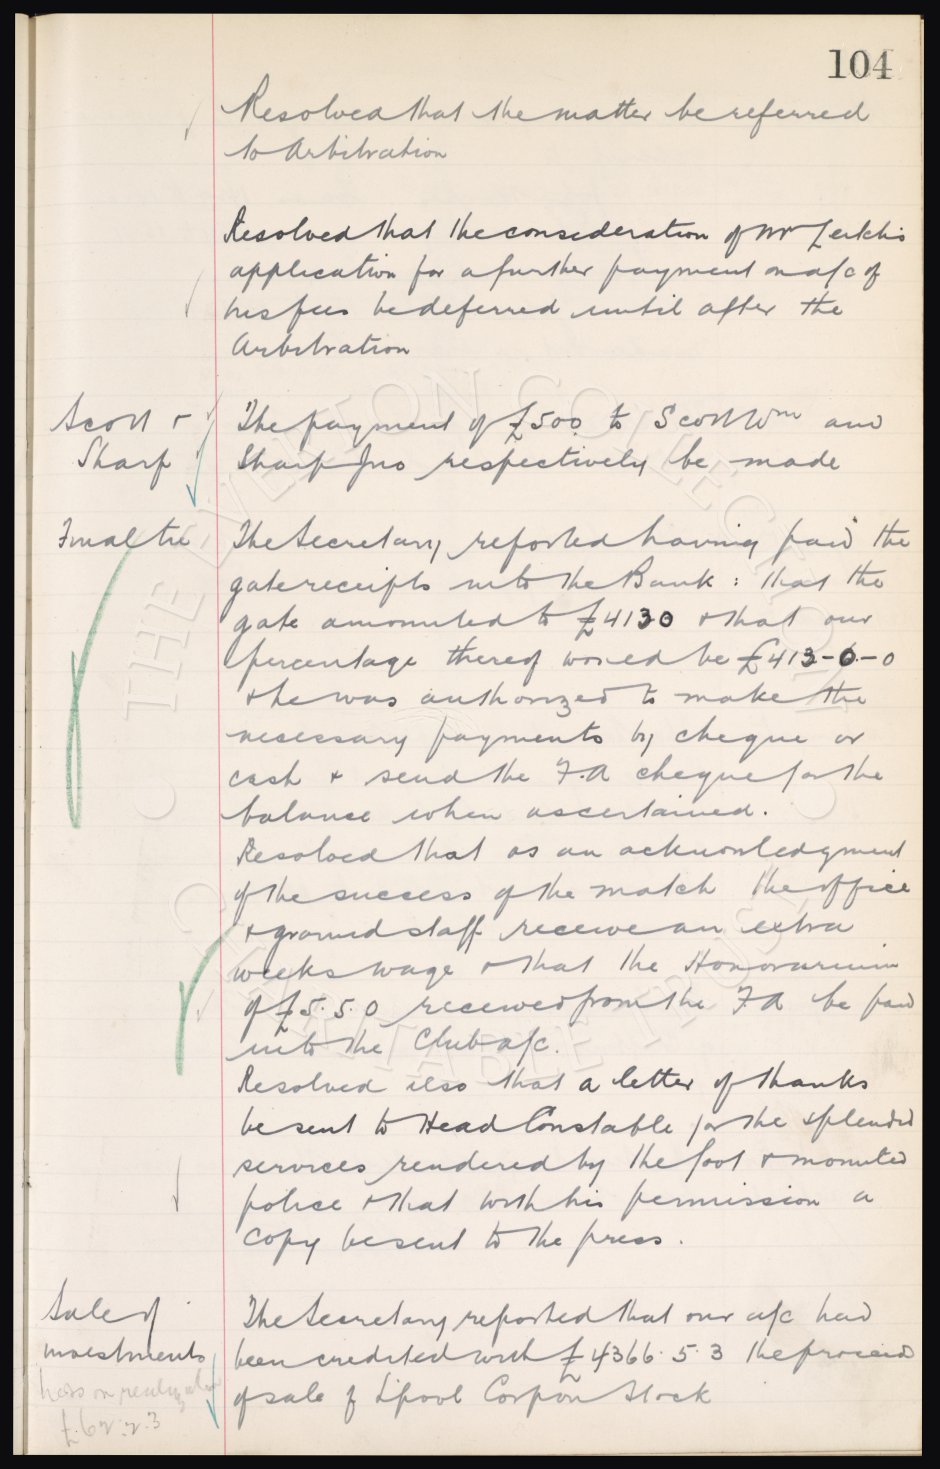 104
Resolved that the matter be referred
to Arbitration
Resolved that the consideration of Mr Leitch's
application for a further payment on a/c of
his fees be deferred until after the
Arbitration
Scott &
Sharp
The payment of £500 to Scott Wm and
Sharp Jno respectively be made
Final tie
The Secretary reported having paid the
gate receipts into the Bank: that the
gate amounted to £4130 & that our
percentage thereof would be £413-0-0
& he was authorized to make the
necessary payments by cheque or
cash & send the F.A cheque for the
balance when ascertained.
Resolved that as an acknowledgment
of the success of the match the office
& ground staff receive an extra
weeks wage & that the Honorarium
of £5.5.0 received from the F.A be paid
into the Club a/c.
Resolved also that a letter of thanks
be sent to Head Constable for the splendid
services rendered by the foot & mounted
police & that with his permission a
copy be sent to the press.
Sale of
investments
loss on realization
£62.2.3
The Secretary reported that our a/c had
been credited with £4366.5.3 the proceeds
of sale of L'pool Corpon Stock
THE EVERTON COLLECTION
CHARITABLE TRUST